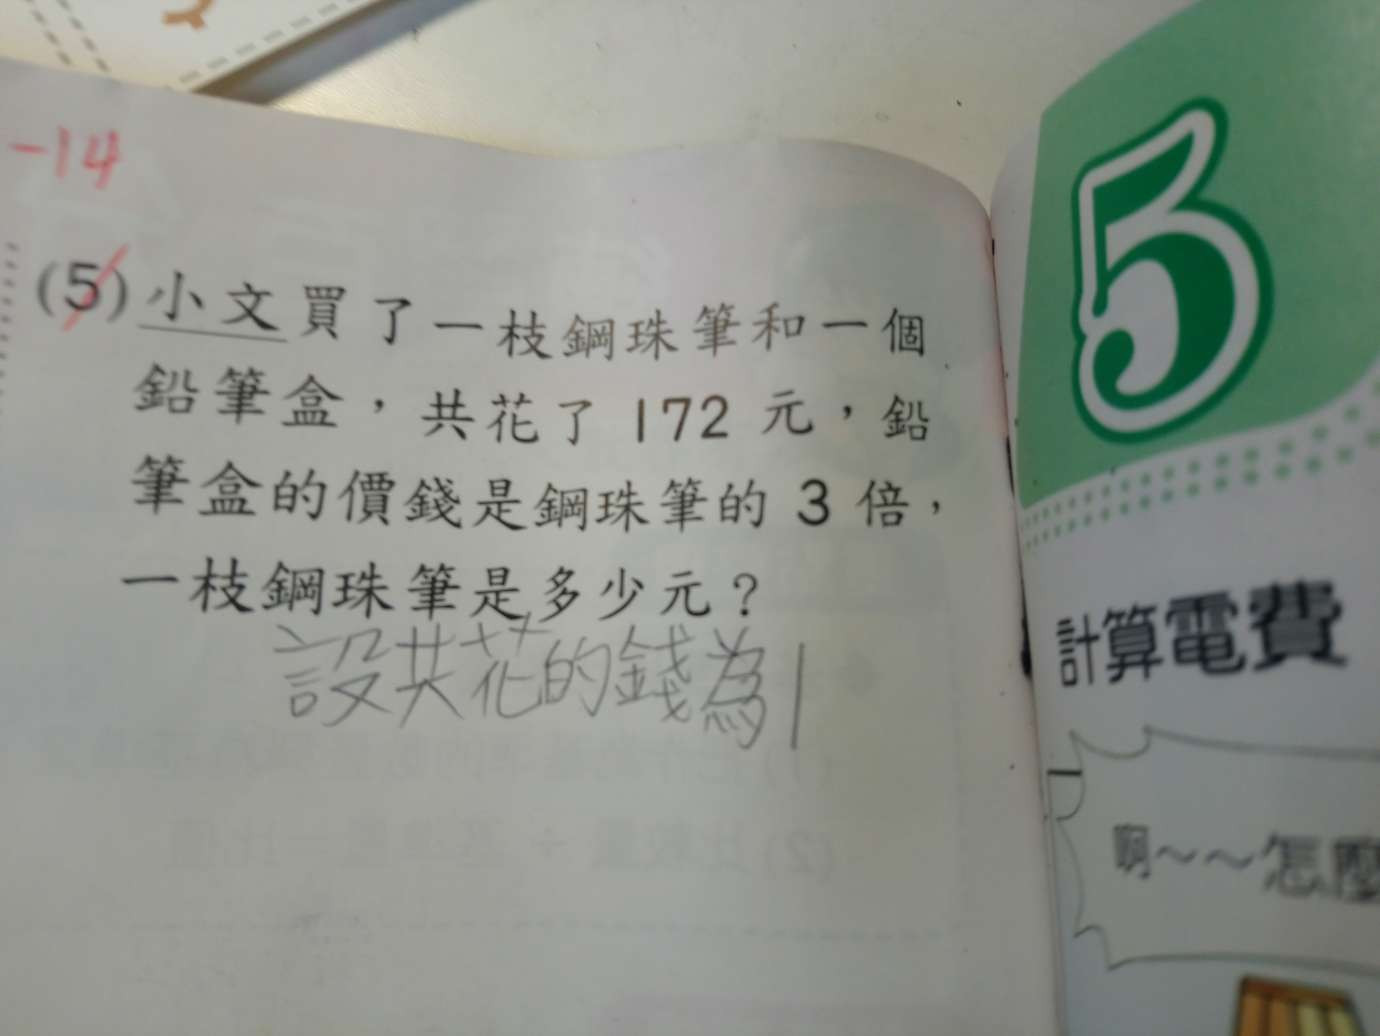 -14
(5) 小文買了一枝鋼珠筆和一個
鉛筆盒,共花了172元,鉛
筆盒的價錢是鋼珠筆的3倍,
一枝鋼珠筆是多少元?
設共花的錢為1
5
計算電費
啊~~怎麼